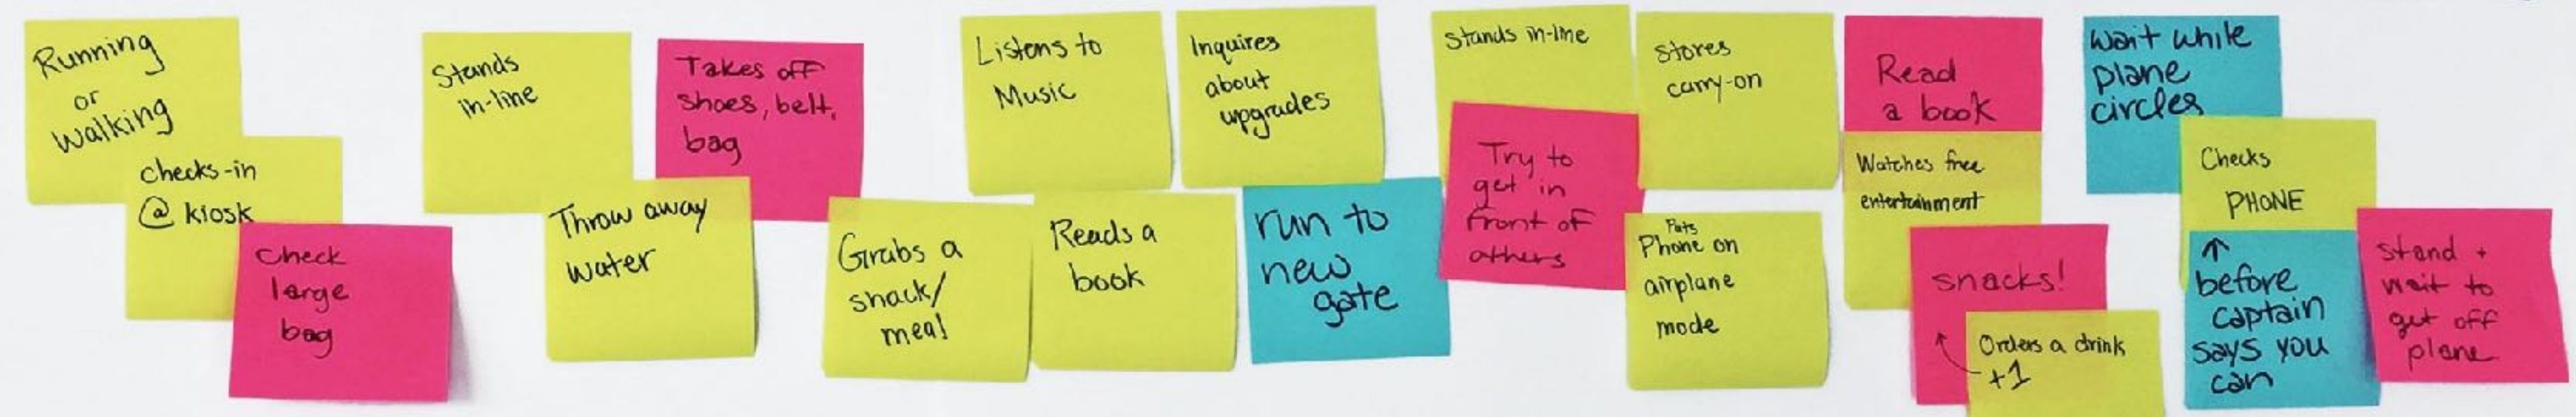 Running
or
Walking
checks-in
@ kiosk
Check
large
bag
Stands
in-line
Takes off
shoes, belt,
bag
Throw away
water
Grabs a
snack/
meal
Listens to
Music
Reads a
book
Inquires
about
upgrades
run to
new
gate
Stands in-line
Try to
get in
front of
others
Stores
carry-on
Puts
Phone on
airplane
mode
Read
a book
Watches free
entertainment
snacks!
Orders a drink
+1
Wait while
plane
circles
Checks
PHONE
↑
before
captain
says you
can
Stand +
wait to
get off
plane